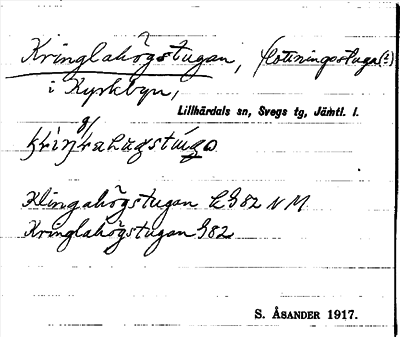 Kringlahögstugan, flottningsstuga(?)
i Kyrkbyn,
Lillhärdals sn, Svegs tg, Jämtl. l.
Klingahögstugan LG82 NM
Kringlahögstugan G82
S. ÅSANDER 1917.